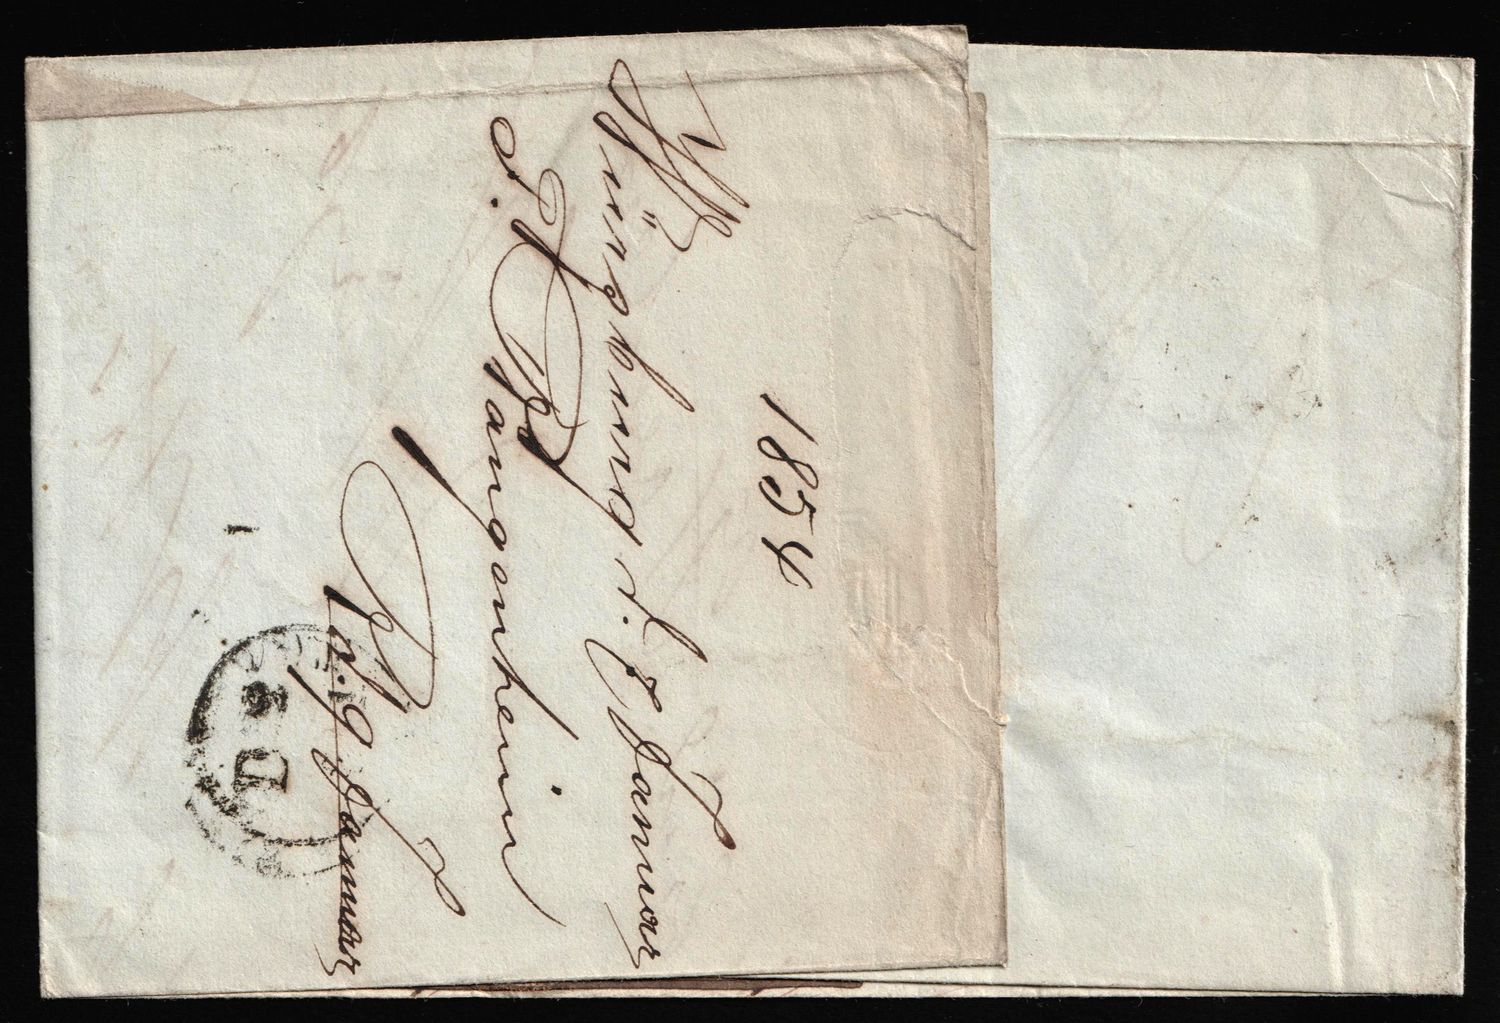 1854
Würzburg d. 7 Januar
J. B. Wangenheim
Rd. 9 Januar